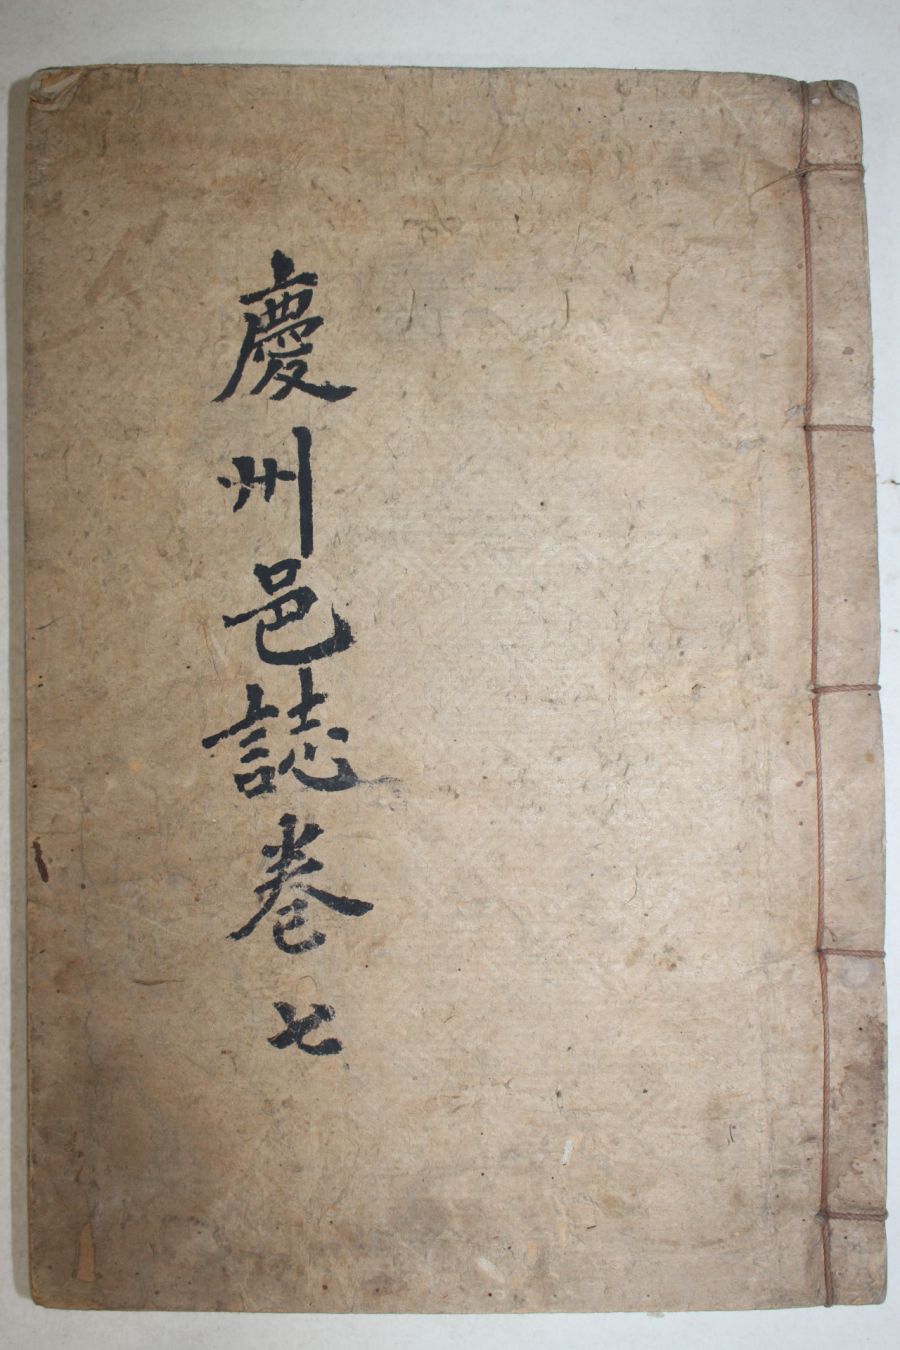 慶州邑誌卷七